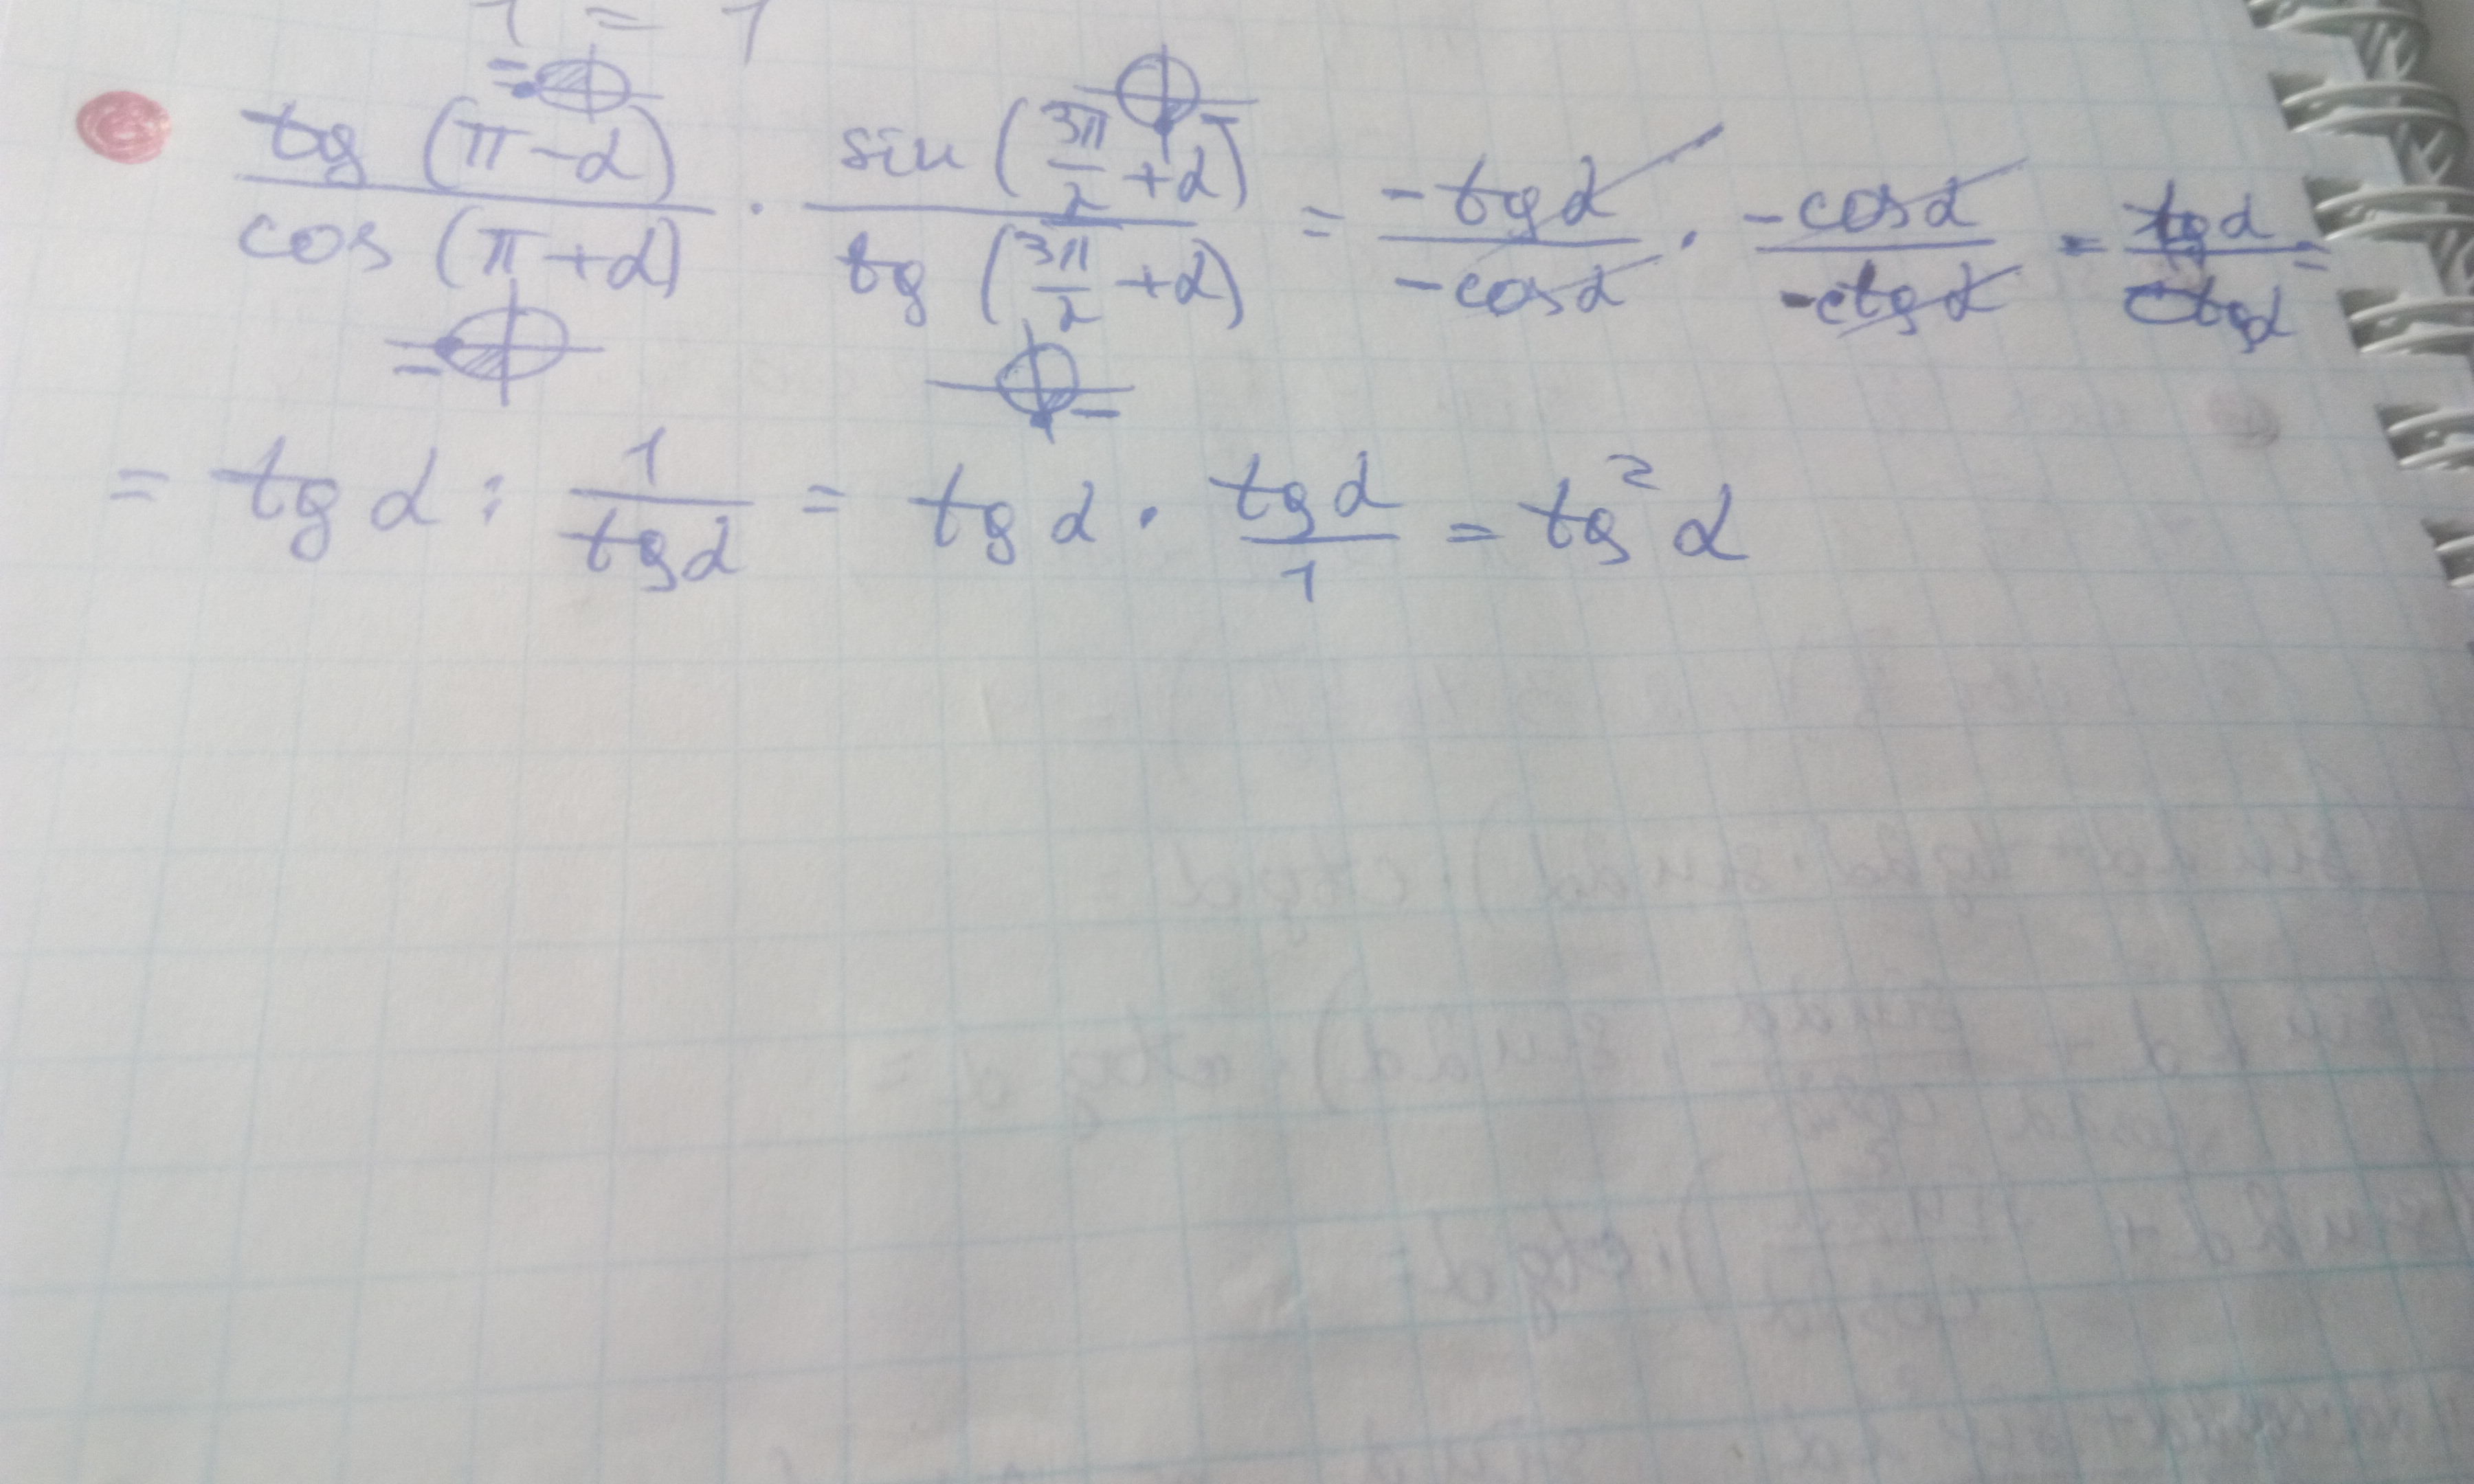 1 = 1
tg (π-α) / cos (π+α) · sin (3π/2 +α) / tg (3π/2 +α) = -tgα / -cosα · -cosα / -ctgα = tgα / ctgα =
= tg α : 1/tgα = tg α · tgα/1 = tg² α